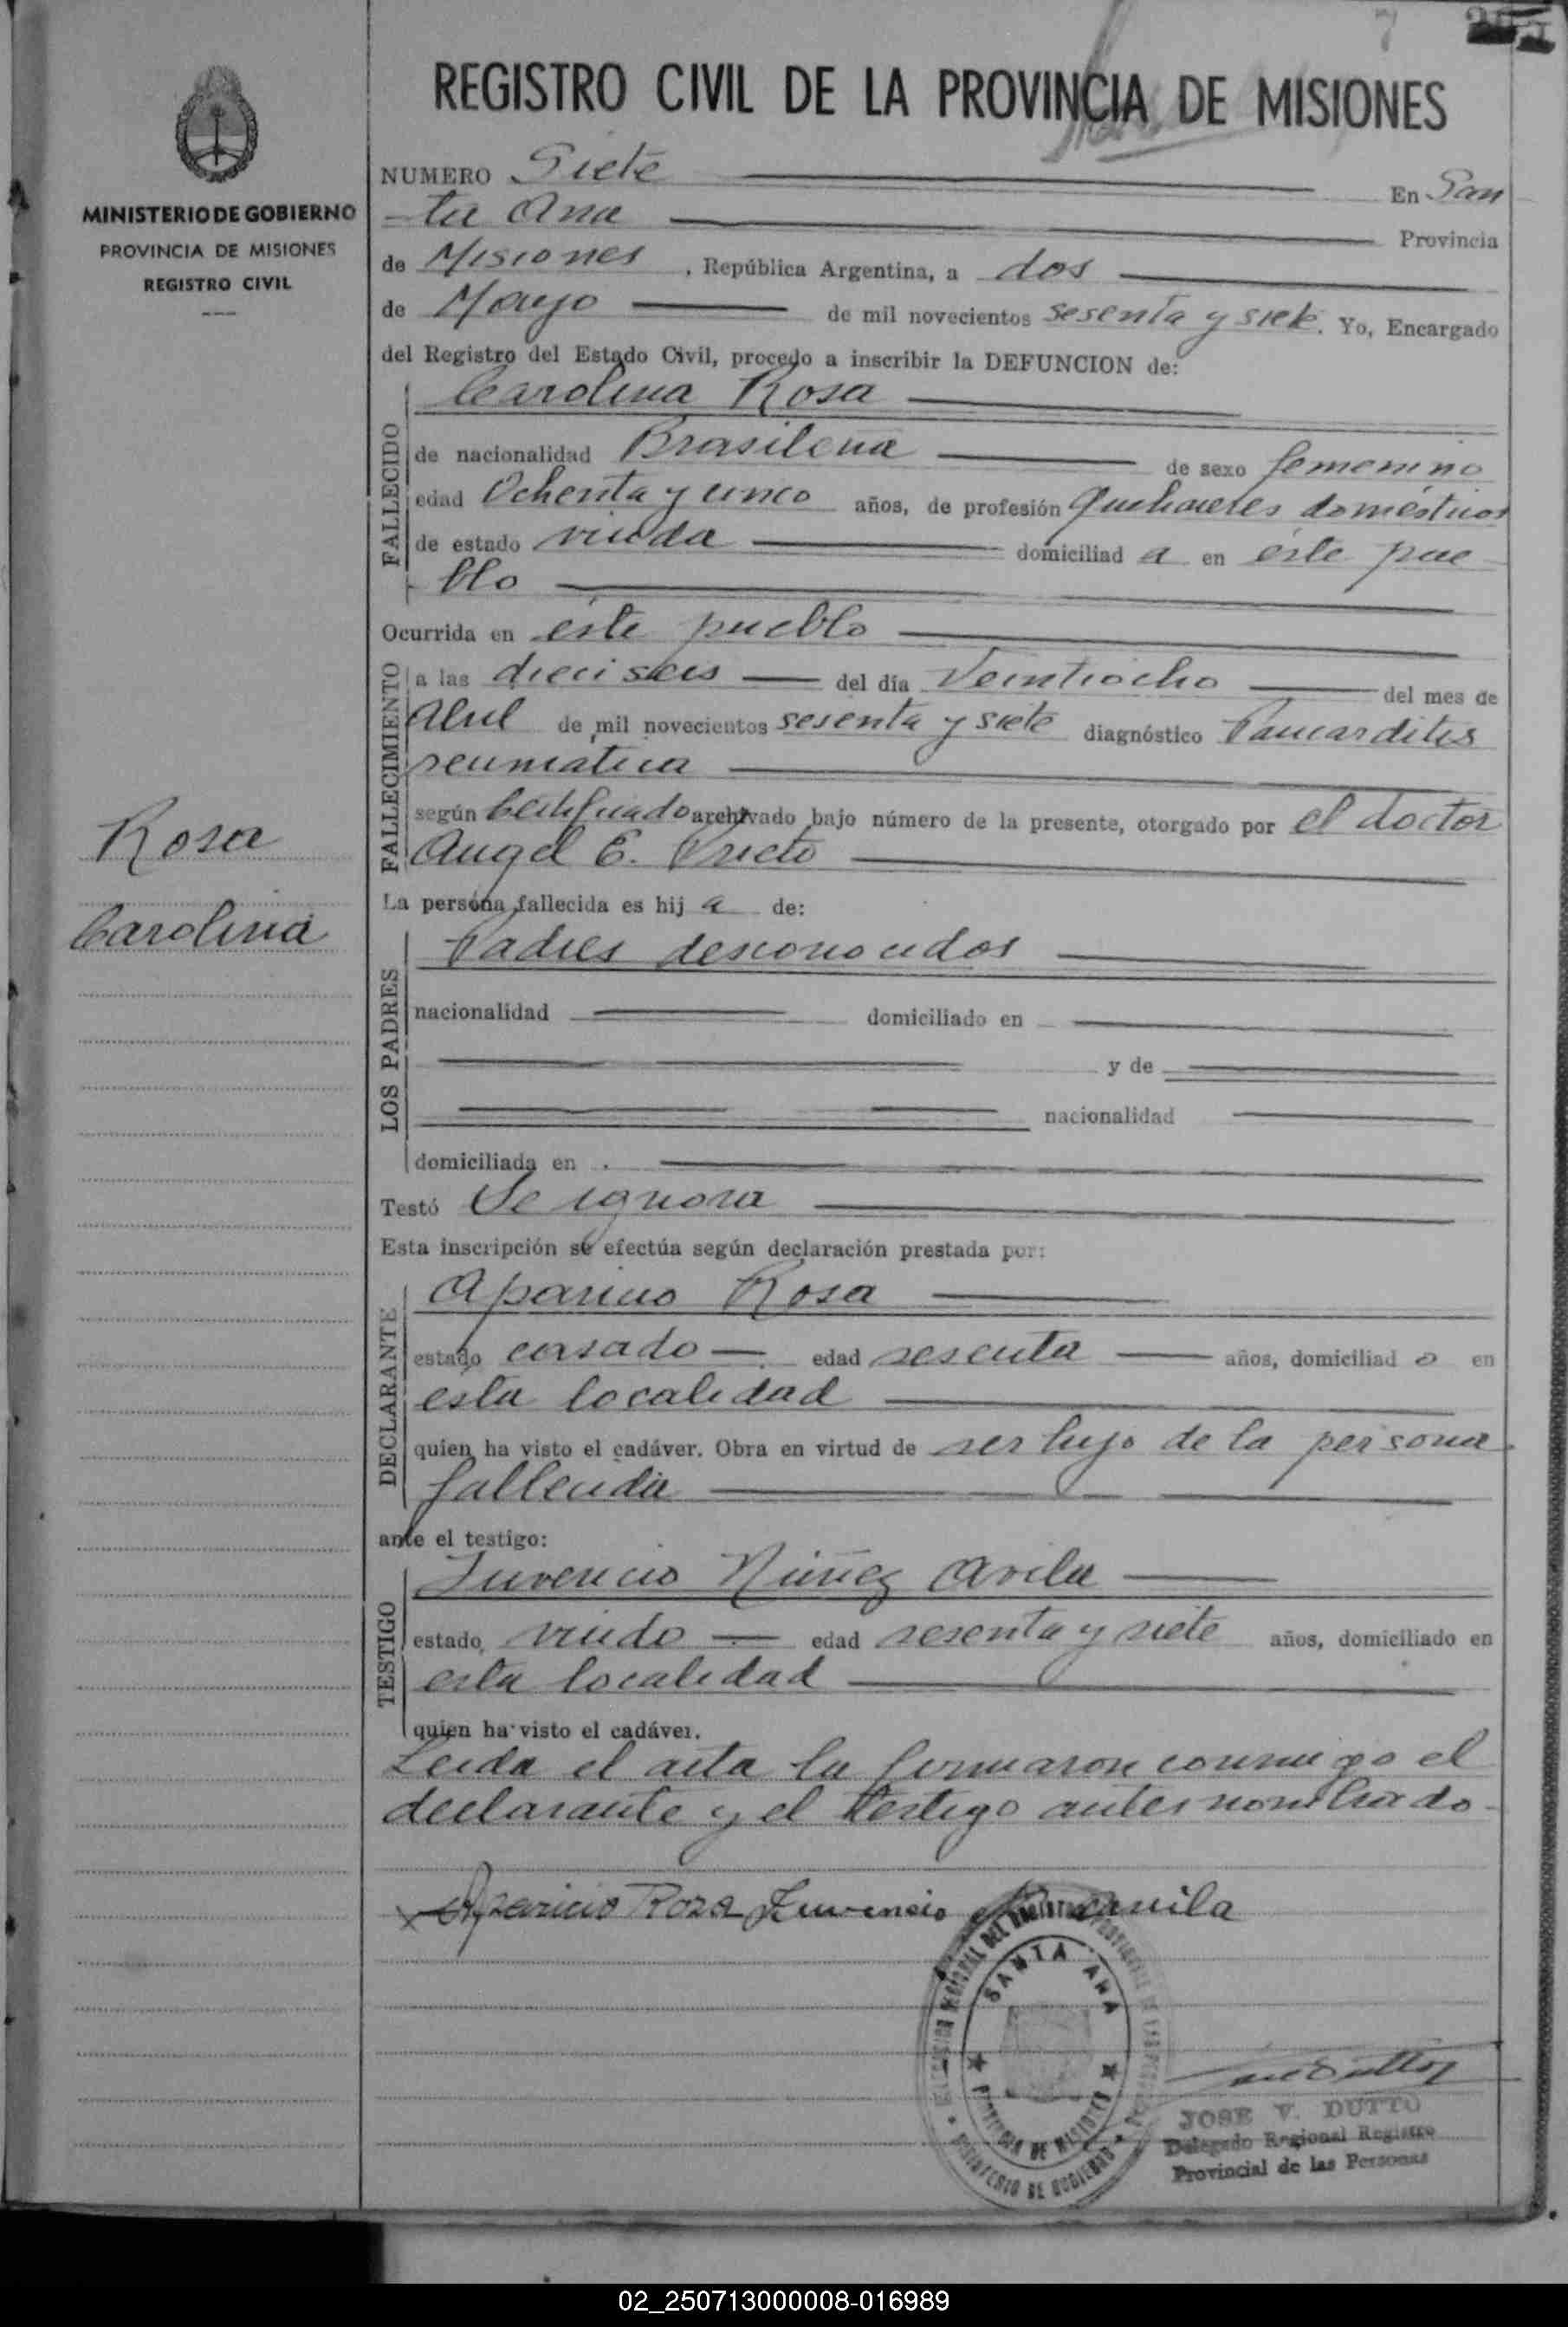 7
REGISTRO CIVIL DE LA PROVINCIA DE MISIONES
MINISTERIO DE GOBIERNO
PROVINCIA DE MISIONES
REGISTRO CIVIL
NUMERO Siete En San
ta Ana Provincia
de Misiones, República Argentina, a dos
de Mayo de mil novecientos sesenta y siete. Yo, Encargado
del Registro del Estado Civil, procedo a inscribir la DEFUNCION de:
Carolina Rosa
FALLECIDO
de nacionalidad Brasileña de sexo femenino
edad Ochenta y cinco años, de profesión Quehaceres domésticos
de estado viuda domiciliad a en éste pue
blo
Ocurrida en éste pueblo
FALLECIMIENTO
a las dieciseis del día Veintiocho del mes de
Abril de mil novecientos sesenta y siete diagnóstico Pancarditis
reumatica
según Certificado archivado bajo número de la presente, otorgado por el doctor
Angel E. Prieto
La persona fallecida es hij a de:
LOS PADRES
Padres desconocidos
nacionalidad domiciliado en
y de
nacionalidad
domiciliada en
Testó Se ignora
Esta inscripción se efectúa según declaración prestada por:
Aparicio Rosa
DECLARANTE
estado casado edad sesenta años, domiciliad o en
esta localidad
quien ha visto el cadáver. Obra en virtud de ser hijo de la persona
fallecida
ante el testigo:
Juvencio Núñez Avila
TESTIGO
estado viudo edad sesenta y siete años, domiciliado en
esta localidad
quien ha visto el cadáver.
Leida el acta la firmaron conmigo el
declarante y el testigo antes nombrado
Rosa
Carolina
Aparicio Roza Juvencio N. Avila
SANTA ANA
PROVINCIA DE MISIONES
MINISTERIO DE GOBIERNO
JOSE V. DUTTO
Delegado Regional Registro
Provincial de las Personas
02_250713000008-016989